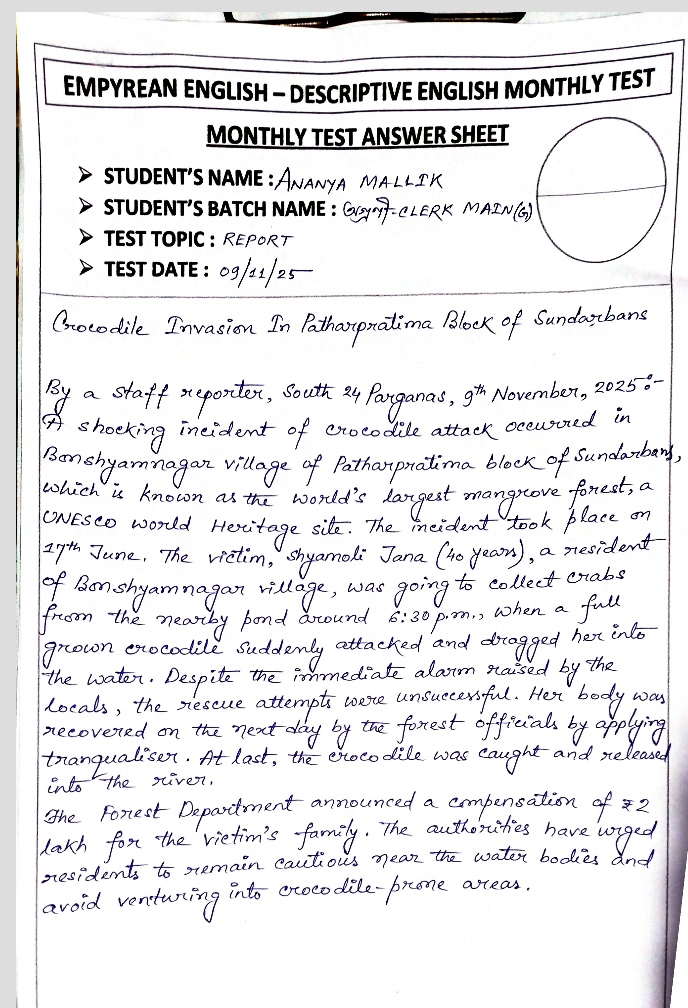 EMPYREAN ENGLISH – DESCRIPTIVE ENGLISH MONTHLY TEST
MONTHLY TEST ANSWER SHEET
➤ STUDENT'S NAME : ANANYA MALLIK
➤ STUDENT'S BATCH NAME : CLERK MAIN(G)
➤ TEST TOPIC : REPORT
➤ TEST DATE : 09/11/25
Crocodile Invasion In Patharpratima Block of Sundarbans
By a staff reporter, South 24 Parganas, 9th November, 2025:-
A shocking incident of crocodile attack occurred in
Bonshyamnagar village of Patharpratima block of Sundarbans,
which is known as the world's largest mangrove forest, a
UNESCO world Heritage site. The incident took place on
17th June. The victim, Shyamoli Jana (40 years), a resident
of Bonshyamnagar village, was going to collect crabs
from the nearby pond around 6:30 p.m., when a full
grown crocodile suddenly attacked and dragged her into
the water. Despite the immediate alarm raised by the
locals, the rescue attempts were unsuccessful. Her body was
recovered on the next day by the forest officials by applying
tranqualiser. At last, the crocodile was caught and released
into the river.
The Forest Department announced a compensation of ₹2
lakh for the victim's family. The authorities have urged
residents to remain cautious near the water bodies and
avoid venturing into crocodile-prone areas.